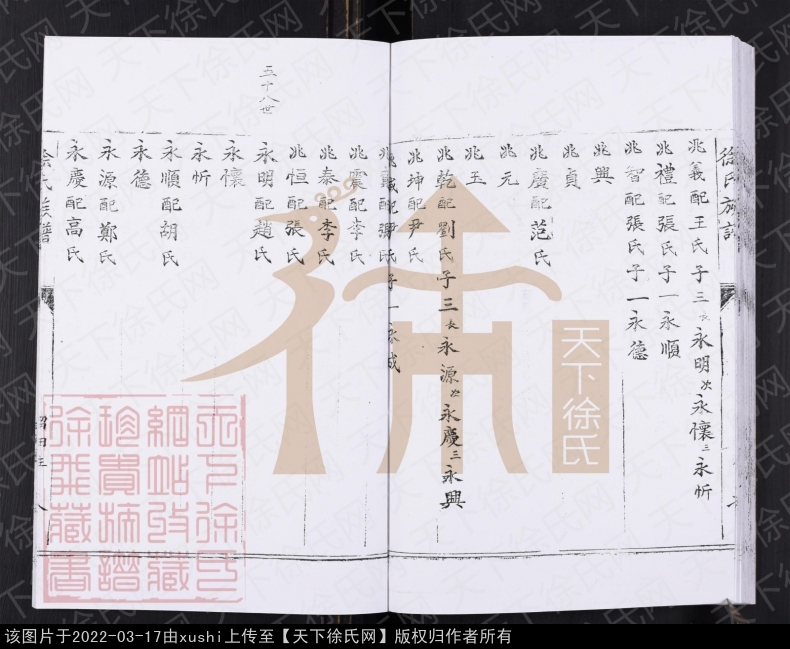 徐氏族譜
兆義配王氏子三長永明次永懷三永忻
兆禮配張氏子一永順
兆智配張氏子一永德
兆興
兆貞
兆廣配范氏
兆元
兆玉
兆乾配劉氏子三長永源次永慶三永興
兆坤配尹氏
配尹氏子一永成
兆震配李氏
兆泰配李氏
兆恒配張氏
五十八世
永明配趙氏
永懷
永忻
永順配胡氏
永德
永源配鄭氏
永慶配高氏
徐氏族譜
天下徐氏
天下徐氏
網站收藏
珍貴摘譜
徐飛藏書
天下徐氏网
该图片于2022-03-17由xushi上传至【天下徐氏网】版权归作者所有